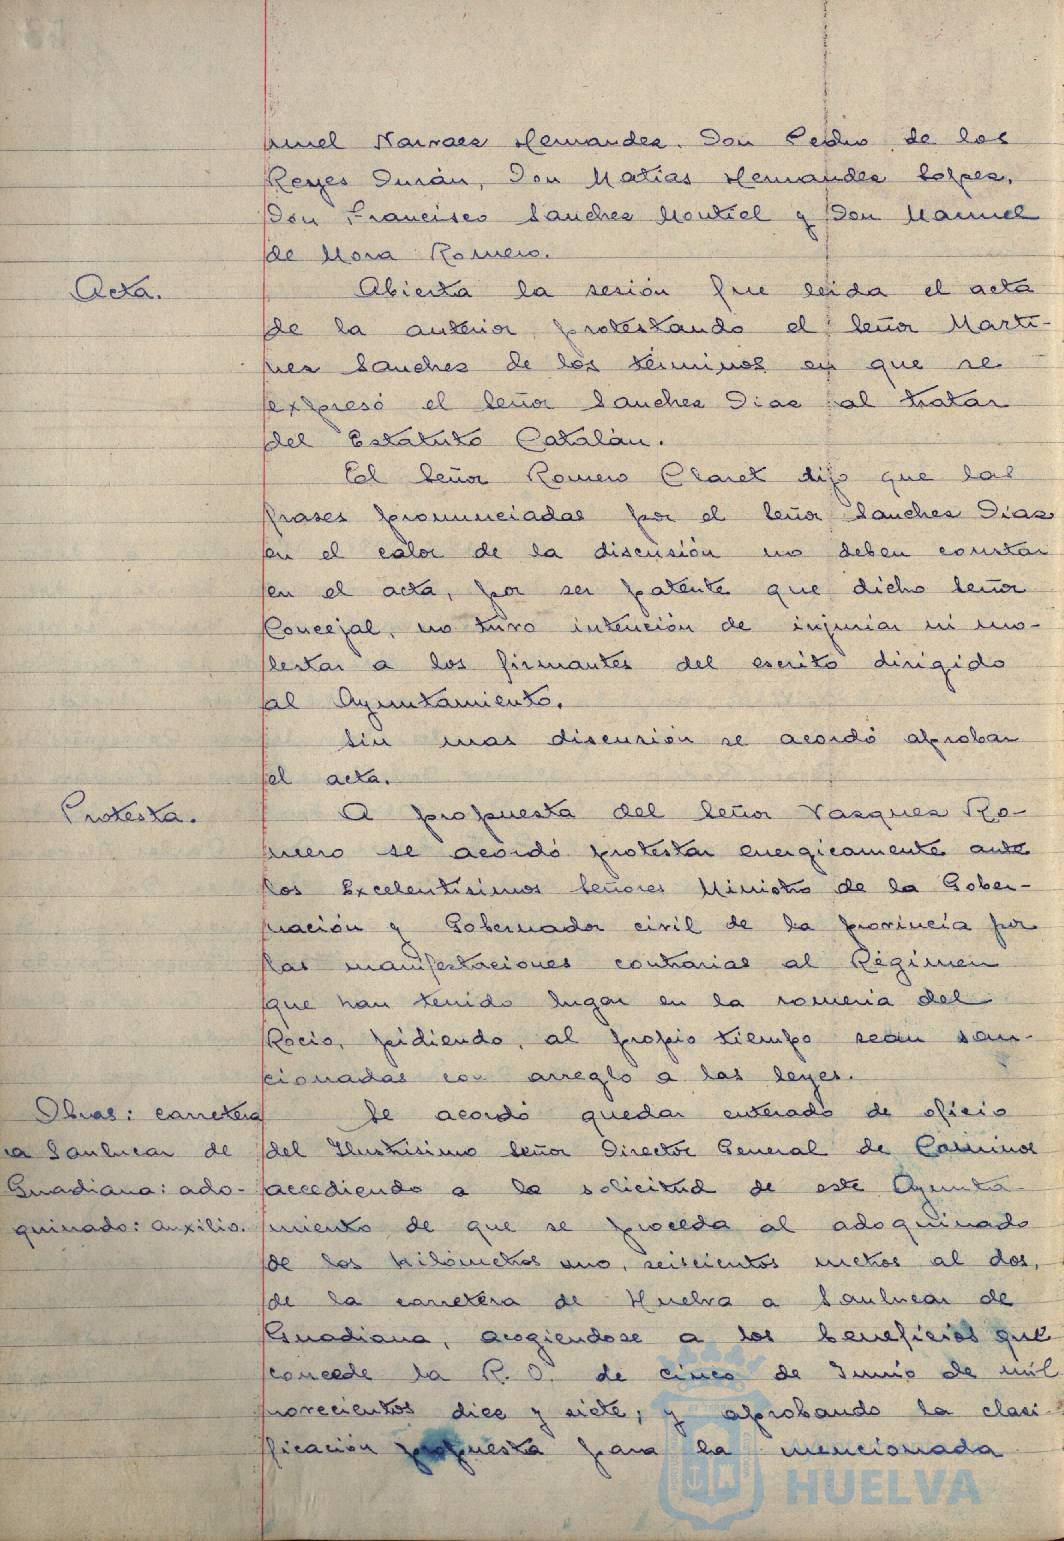 nuel Narvaez Hernandez, Don Pedro de los
Reyes Durán, Don Matías Hernandez Lopez,
Don Francisco Sanchez Montiel y Don Manuel
de Mora Romero.
Acta.
Abierta la sesión fue leida el acta
de la anterior, protestando el Señor Marti-
nez Sanchez de los términos en que se
expresó el Señor Sanchez Diaz al tratar
del Estatuto Catalán.
El Señor Romero Claret dijo que las
frases pronunciadas por el Señor Sanchez Diaz
en el calor de la discusión no deben constar
en el acta, por ser patente que dicho Señor
Concejal, no tuvo intención de injuriar ni mo-
lestar a los firmantes del escrito dirigido
al Ayuntamiento.
Sin mas discusión se acordó aprobar
el acta.
Protesta.
A propuesta del Señor Vazquez Ro-
mero se acordó protestar energicamente ante
los Excelentísimos Señores Ministro de la Gober-
nación y Gobernador civil de la provincia por
las manifestaciones contrarias al Régimen
que han tenido lugar en la romeria del
Rocio, pidiendo, al propio tiempo sean san-
cionadas con arreglo a las leyes.
Obras: carretera
a Sanlucar de
Guadiana: ado-
quinado: auxilio.
Se acordó quedar enterado de oficio
del Ilustrísimo Señor Director General de Caminos
accediendo a la solicitud de este Ayunta-
miento de que se proceda al adoquinado
de los kilómetros uno, seiscientos metros al dos,
de la carretera de Huelva a Sanlucar de
Guadiana, acogiendose a los beneficios que
concede la R. O. de cinco de Junio de mil
novecientos diez y siete; y aprobando la clasi-
ficación propuesta para la mencionada
HUELVA